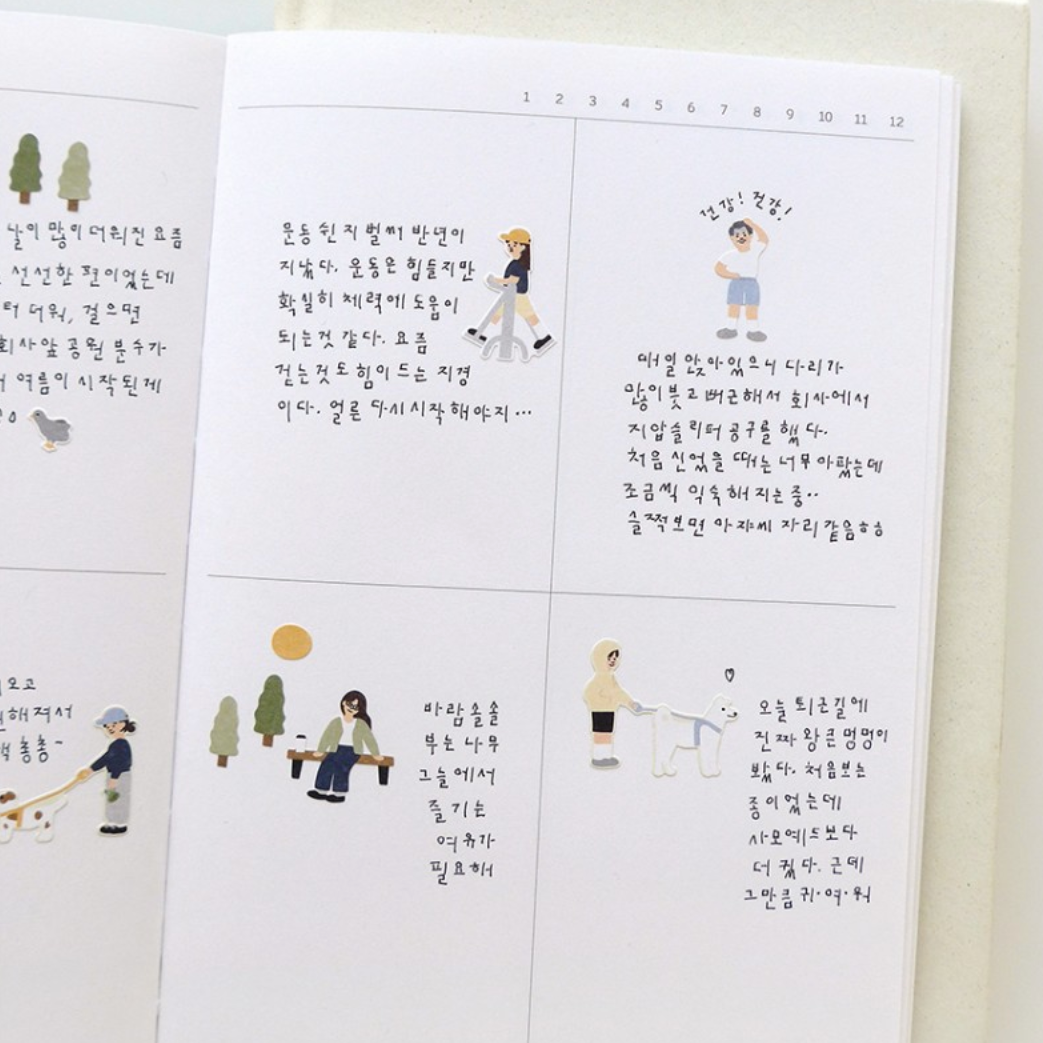 날이 많이 더워진 요즘
선선한 편이었는데
터 더워, 걸으면
회사 앞 공원 분수가
여름이 시작된게
오고
해져서
총총~
1 2 3 4 5 6 7 8 9 10 11 12
운동 쉰지 벌써 반년이
지났다. 운동은 힘들지만
확실히 체력에 도움이
되는것 같다. 요즘
걷는것도 힘이 드는 지경
이다. 얼른 다시 시작해야지...
건강! 건강!
매일 앉아있으니 다리가
많이 붓고 뻐근해서 회사에서
지압슬리퍼 공구를 했다.
처음 신었을 때는 너무 아팠는데
조금씩 익숙해 지는 중..
슬쩍보면 아자씨 자리 같음ㅎㅎ
바람 솔솔
부는 나무
그늘에서
즐기는
여유가
필요해
오늘 퇴근길에
진짜 왕큰 멍멍이
봤다. 처음보는
종이었는데
사모예드보다
더 컸다. 근데
그만큼 귀·여·워